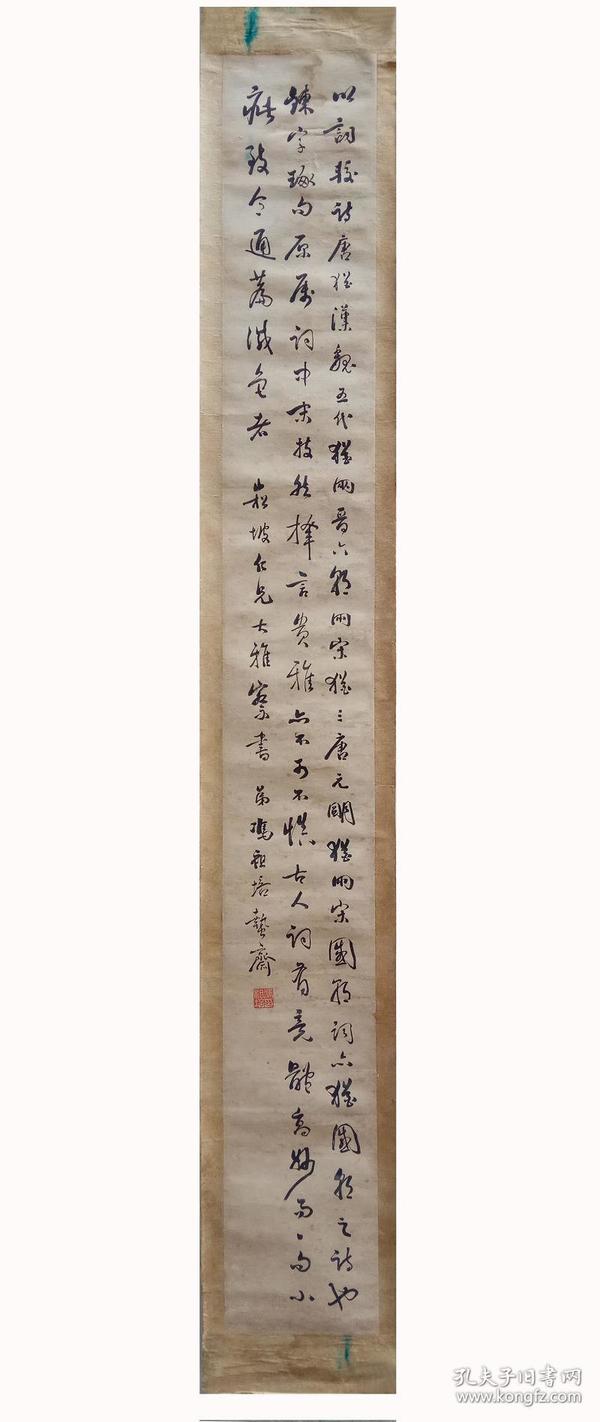 以詞較詩唐猶漢魏五代猶兩晉六朝兩宋猶三唐元明猶兩宋國朝詞亦猶國朝之詩也
鍊字琢句原屬詞中末技然擇言貴雅亦不可不慎古人詞有竟體高妙而一句小
疵致令通篇減色者 崧坡仁兄大雅察書 弟馮
蟄齋
孔夫子旧书网
www.kongfz.com